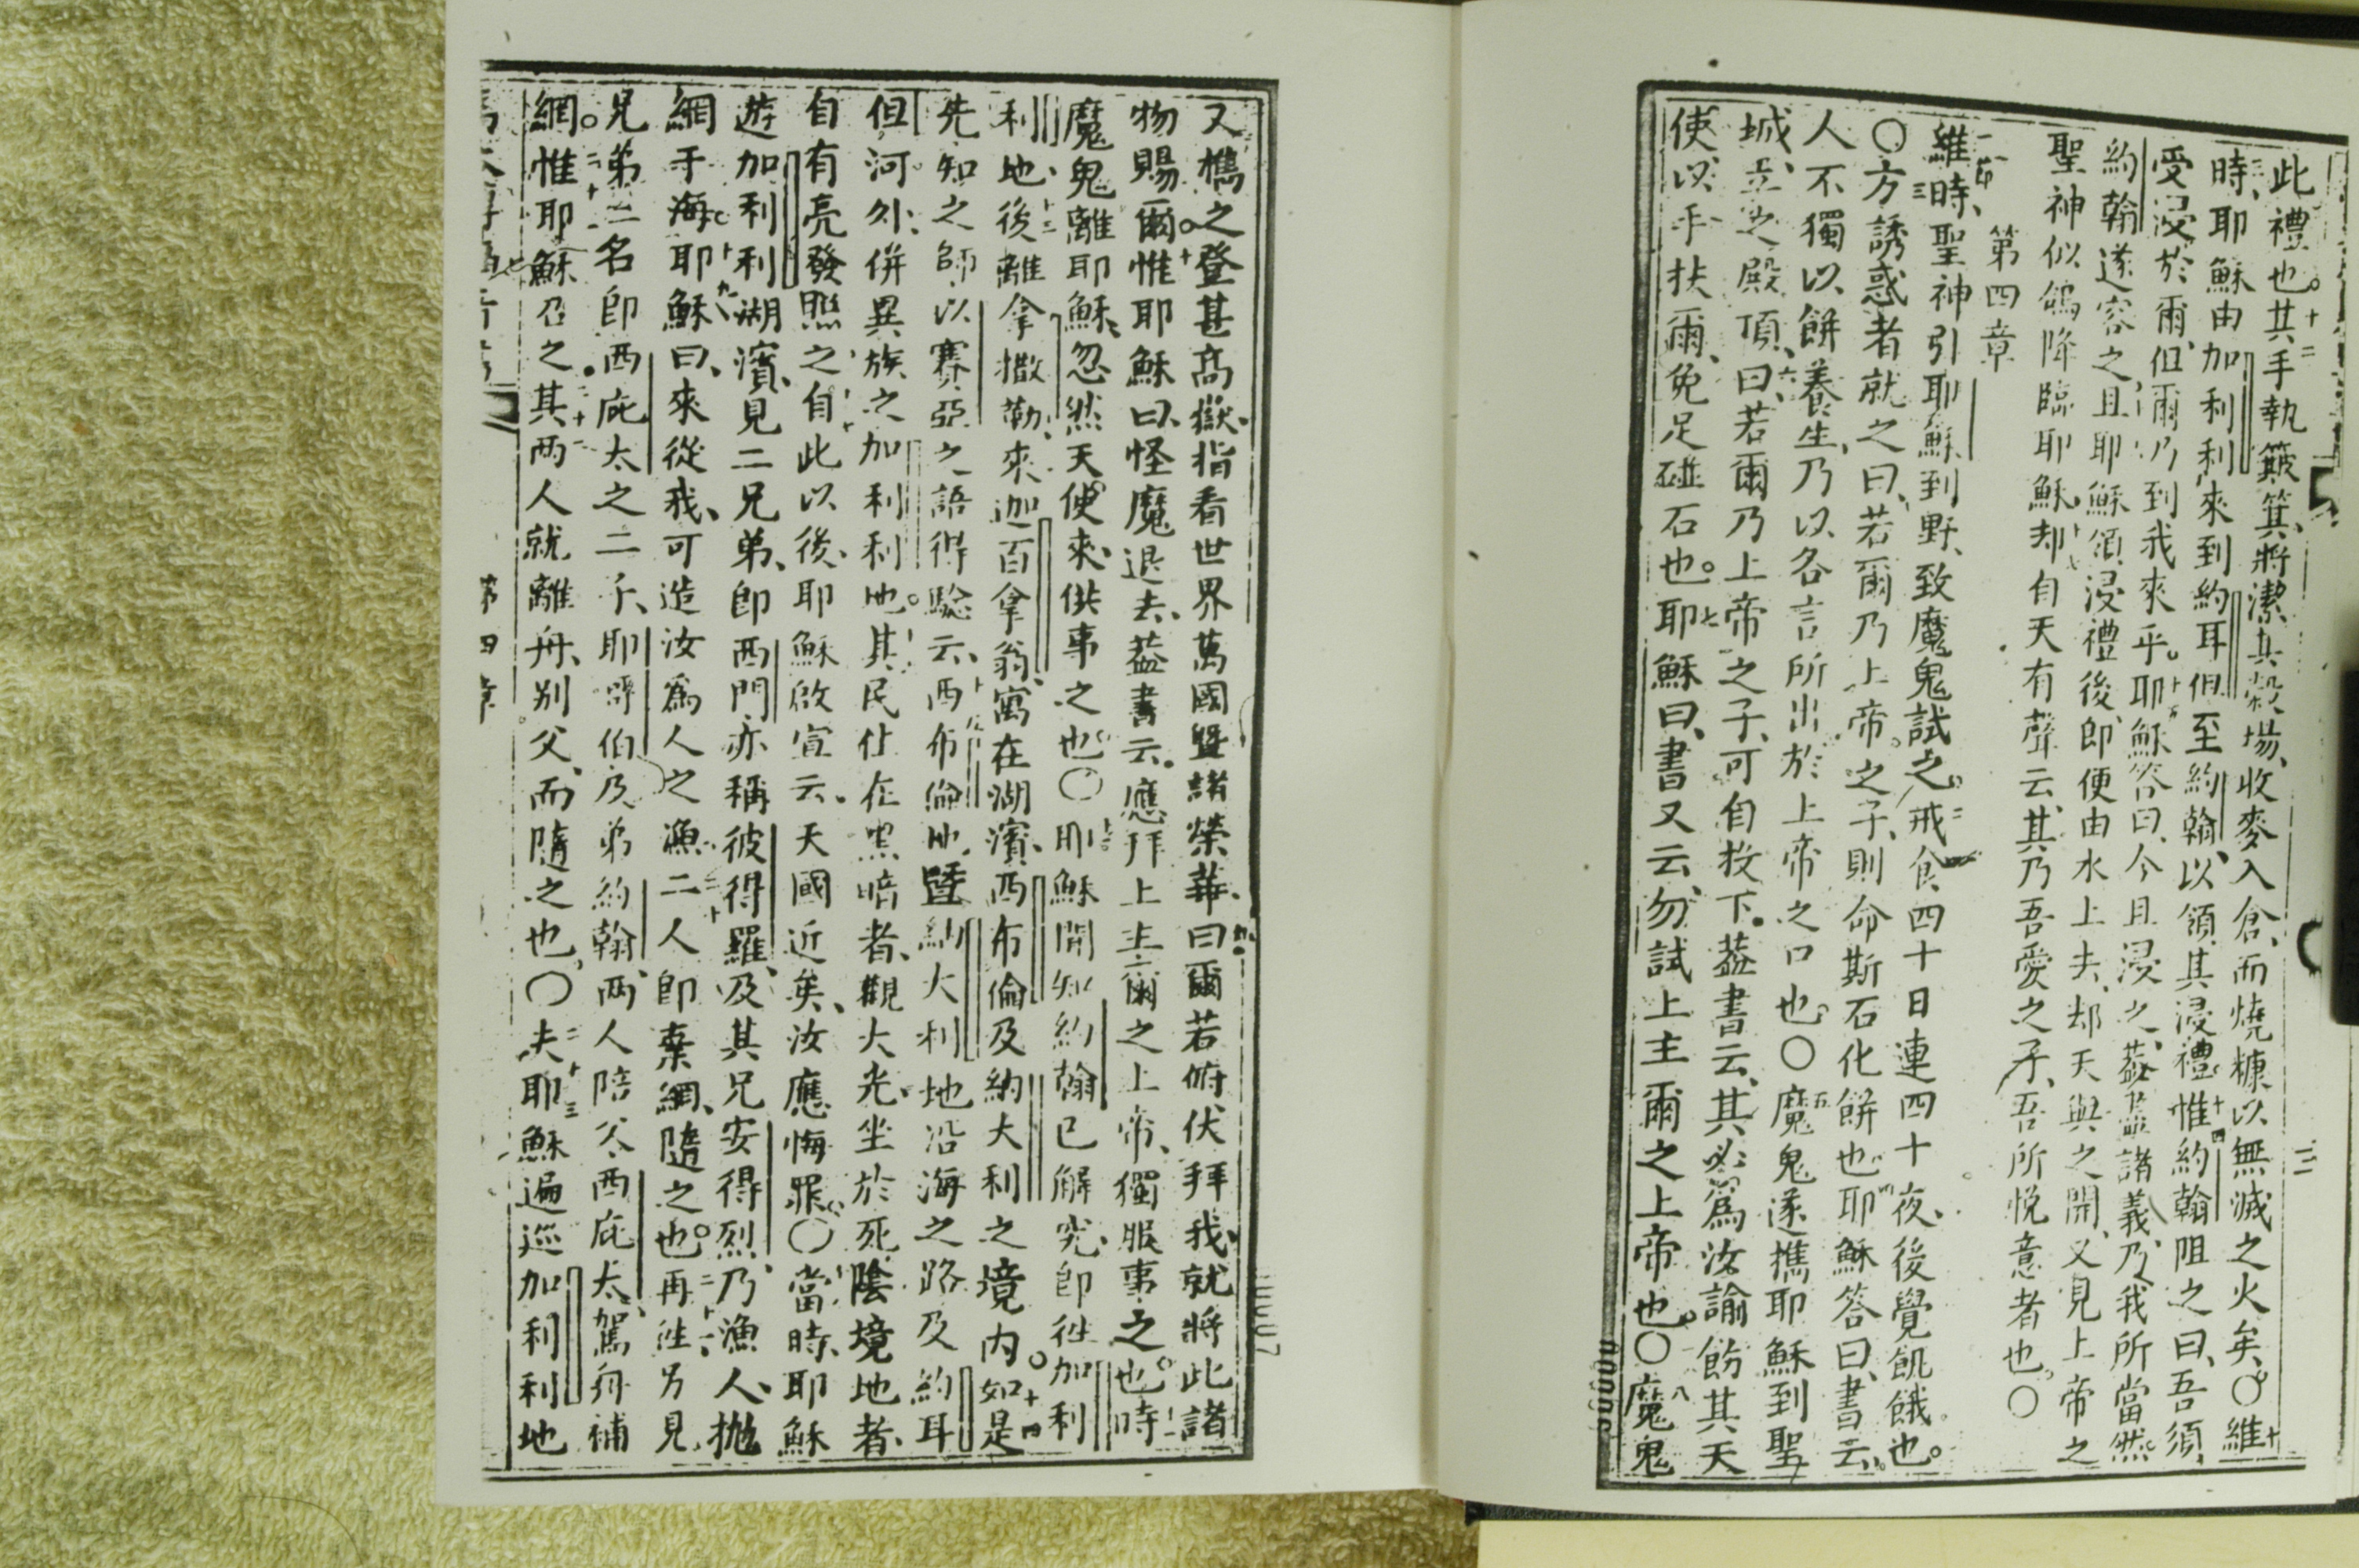 此禮也。十二其手執簸箕、將潔其穀場、收麥入倉、而燒糠以無滅之火矣。〇維十
三時、耶穌由加利利來到約耳但至約翰、以領其浸禮。十四惟約翰阻之曰、吾須
受浸於爾、但爾乃到我來乎。十五耶穌答曰、今且浸之、蓋諸義、乃我所當然。
約翰遂容之、且耶穌領浸禮後、即便由水上去、却天與之開、又見上帝之
聖神似鴿降臨耶穌、十七却自天有聲云、其乃吾愛之子、吾所悅意者也。〇
第四章
一節維時、聖神引耶穌到野、致魔鬼試之。二戒食四十日連四十夜、後覺飢餓也。
〇三方誘惑者就之曰、若爾乃上帝之子、則命斯石化餅也。四耶穌答曰、書云、
人不獨以餅養生、乃以各言所出於上帝之口也。〇五魔鬼遂攜耶穌到聖
城、立之殿頂、六曰、若爾乃上帝之子、可自投下。蓋書云、其必為汝諭飭其天
使、以手扶爾、免足碰石也。七耶穌曰、書又云、勿試上主爾之上帝也。〇八魔鬼
又攜之登甚高嶽、指看世界萬國曁諸榮華、九曰爾若俯伏拜我、就將此諸
物賜爾。十惟耶穌曰、怪魔退去、蓋書云、應拜上主爾之上帝、獨服事之也。十一時
魔鬼離耶穌、忽然天使來、供事之也。〇十二耶穌聞知約翰已解究、即徃加利
利地、十三後離拿撒勒、來迦百拿翁、寓在湖濱、西布倫及納大利之境內。十四如是
先知之師以賽亞之語得驗云、十五西布倫地、曁納大利地沿海之路及約耳
但河外、併異族之加利利地。十六其民住在黑暗者、觀大光、坐於死陰境地者、
自有亮發照之。十七自此以後、耶穌啟宣云、天國近矣、汝應悔罪。〇十八當時、耶穌
遊加利利湖濱、見二兄弟、即西門亦稱彼得羅、及其兄安得烈、乃漁人、拋
網于海。十九耶穌曰、來從我、可造汝為人之漁、二十二人即棄網、隨之也。二十一再徃另見
兄弟二名即西庇太之二子、耶哷伯及弟約翰、兩人陪父西庇太、駕舟補
網。二十二惟耶穌召之、其兩人就離舟、別父、而隨之也。〇二十三夫耶穌遍巡加利利地
第四章